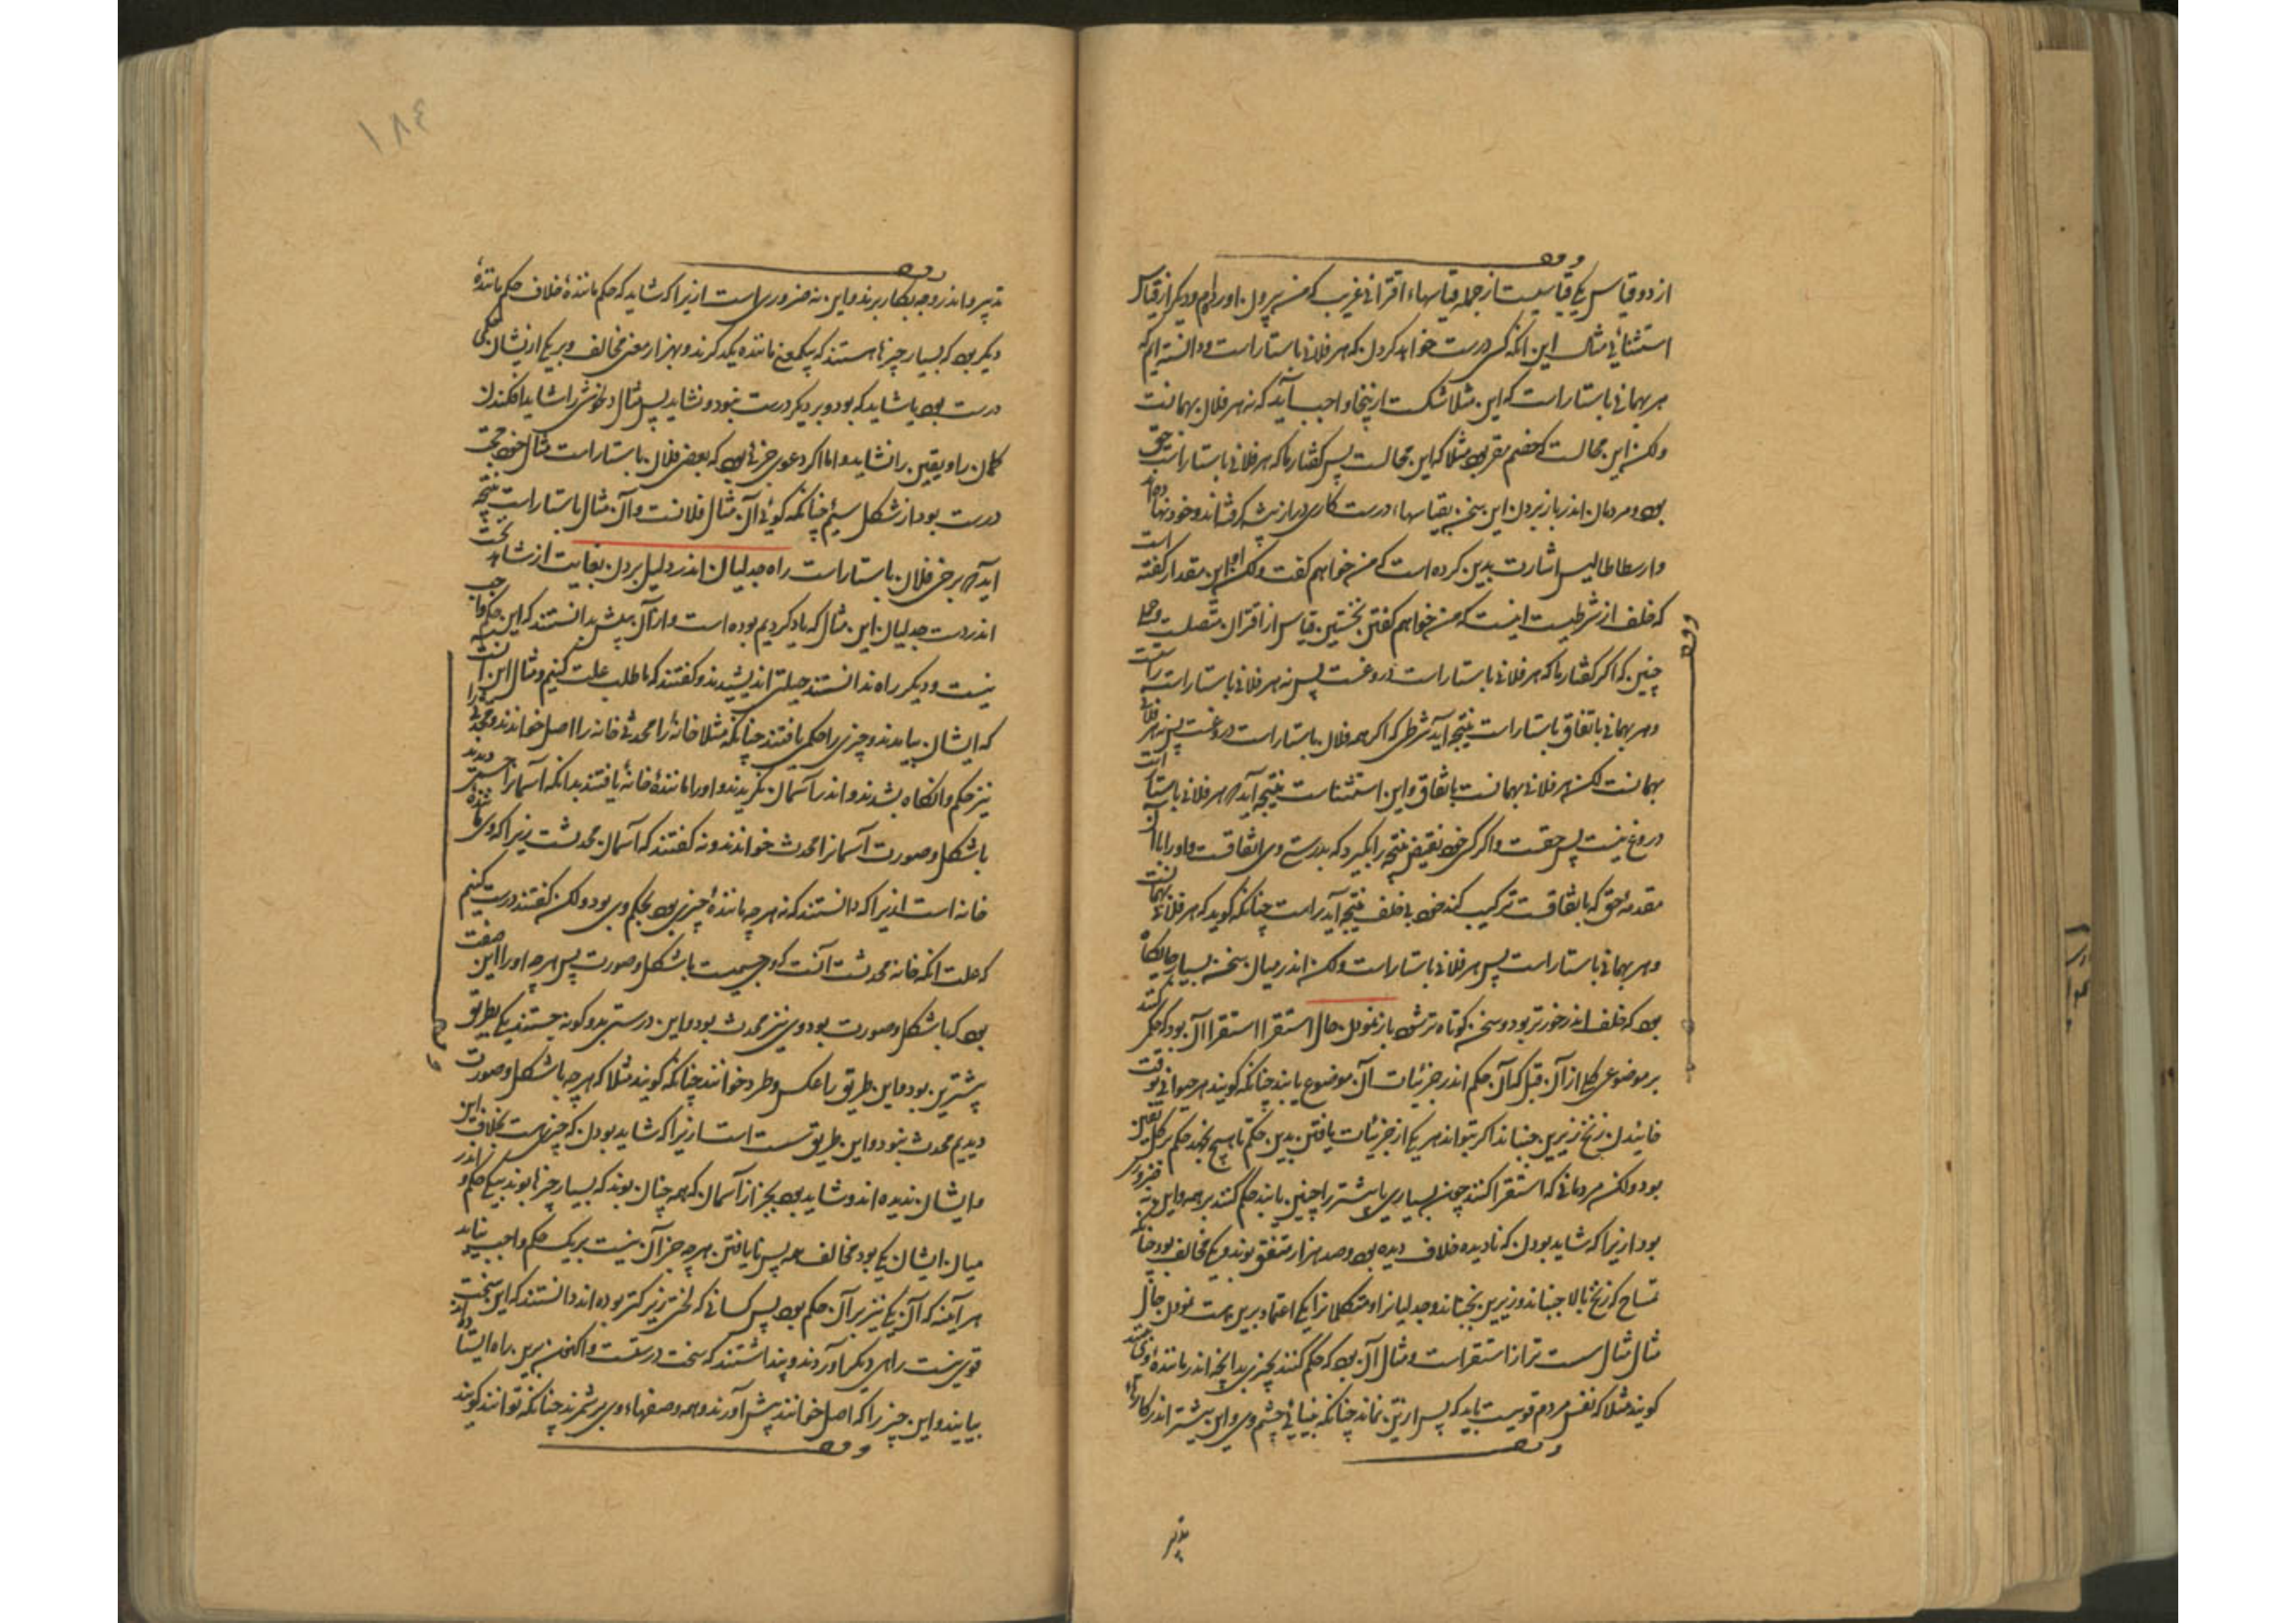 از دو قیاس یکی قیاسیست از جمله قیاسهاء اقترانی غریب که من بیرون اوردهام و دیگر از قیاس
استثنائی مثال این انکه کسی درست خواهد کردن که هر فلانی باستارست و دانسته ایم که
هر بهمانی باستار است که این مثلا شکست ازینجا واجب آید که نه هر فلان بهمانست
ولکن این محالست که خصم مقر بود مثلا که این محالست پس گفتار ما که هر فلانی باستارست حق
بود و مردمان اندر باز بردن این سخن بقیاسهاء درست کاری دراز پیش گرفته‌اند و خود رنجه‌اند
وارسطاطالیس اشارت بدین کرده است که من خواهم گفت ولکن این مقدار گفته است
که خلف از شرطیست اینست که من خواهم گفتن نخستین قیاس از اقتران متصلست و حملی
چنین که اگر گفتار ما که هر فلانی باستار است دروغست پس نه هر فلانی باستار است راستست
و هر بهمانی باتفاق باستار است نتیجه آید شرطی که اگر همه فلان باستار است دروغست پس نه هر فلانی
بهمانست لکن هر فلانی بهمانست باتفاق و این استثناست نتیجه آید که هر فلانی باستار است
دروغ نیست پس حقست و اگر کسی خود نقیض نتیجه را بگیرد که بدرستی وی اتفاقست و او را با آن
مقدمه حق که باتفاقست ترکیب کند خود بی خلف نتیجه آید راست چنانکه گوید که هر فلانی بهمانست
و هر بهمانی باستار است پس هر فلانی باستار است ولکن اندر میان سخن بسیار جایگاه
بود که خلف اندر خورتر بود و سخن کوتاه تر شود باز نمودن حال استقرا استقرا آن بود که حکم کنند
بر موضوعی کلی از آن قبل که آن حکم اندر جزئیات آن موضوع یابند چنانکه گویند هر حیوانی بوقت
خائیدن زنخ زیرین جنباند اگر بتواند هر یکی از جزئیات یافتن بدین حکم تا هیچ بنجهد حکم بر کلی یقین
بود ولکن مردمانی که استقرا کنند چون بسیاری یا بیشتر را چنین یابند حکم کنند بر همه و این نه ضروری
بود ازیرا که شاید بودن که نادیده خلاف دیده بود و صد هزار متفق بوند و یکی مخالف بود چنانکه
تمساح که زنخ بالا جنباند و زیرین بجنباند و جدلیان را و متکلمان را یکی اعتماد برین است نمودن حال
مثال مثال سست تر از استقراست و مثال آن بود که حکم کنند بچیزی بدانچه اندر مانندهٔ وی بینند
گویند مثلا که نفس مردم قویست باید که پس از تن نماند چنانکه بینائی چشم وی و این بیشتر اندر کارهاء
تدبیر
۱۸۴
تدبیر و اندر وجه بکار برند و این نه ضروری است ازیرا که شاید که حکم مانندهٔ خلاف حکم مانندهٔ
دیگر بود که بسیار چیزها هستند که بیک معنی ماننده یکدیگرند و بهزار معنی مخالف و بر یکی ازیشان حکمی
درست بود یا شاید که بود و بر دیگر درست نبود و نشاید پس مثال دلخوشی را شاید و افکندن
گمان را و یقین را نشاید و اما اگر دعوی جزئی بود که بعضی فلان باستار است مثال خود حجت
درست بود از شکل سیم چنانکه گوئی آن مثال فلانست و آن مثال باستار است نتیجه
آید که برخی فلان باستار است راه جدلیان اندر دلیل بردن بغایت از شاهد نخست
اندر دست جدلیان این مثال که یاد کردیم بوده است و از آن پیش بدانستند که این حکم واجب
نیست و دیگر راه ندانستند حیلتی اندیشیدند و گفتند که ما طلب علت کنیم و مثال این آنست
که ایشان بیایند و چیزی را حکمی یافتند چنانکه مثلا خانه را محدثی خانه را اصل خوانند و محدثی را
نیز حکم وانگاه بشدند و اندر آسمان نگریدند و او را مانندهٔ خانه یافتند بدانکه آسمان را جسمی دیدند
با شکل و صورت آسمان را محدث خواندند و نه گفتند که آسمان محدثست زیرا که وی مانندهٔ
خانه است ازیرا که دانستند که نه هر چه مانندهٔ چیزی بود بحکم وی بود ولکن گفتند درست کنیم
که علت انکه خانه محدثست آنست که وی جسمیست با شکل و صورت پس هر چه او را این صفت
بود که با شکل و صورت بود وی نیز محدث بود و این درستی بدو گونه جستند یکی بطریق
پیشترین بود و این طریق را عکس و طرد خوانند چنانکه گویند مثلا که هر چه با شکل و صورت
دیدیم محدث بود و این طریق سست است ازیرا که شاید بودن که چیزی هست بخلاف این
و ایشان ندیده اند و شاید بود بجز از آسمان که همه چنان بوند که بسیار چیزها بوند بیک حکم و اندر
میان ایشان یکی بود مخالف همه پس نا یافتن هر چه جز آن نیست بر یک حکم واجب نیاید
هر آینه که آن یکی نیز بر آن حکم بود پس کسانی که لختی زیرکتر بوده اند دانستند که این سخت
قوی نیست راهی دیگر آوردند و پنداشتند که سخت درستست و اکنون برین راه ایستاده‌اند
بیایند و این چیز را که اصل خوانند پیش آورند و همه وصفهاء وی بر شمرند چنانکه توانند گویند